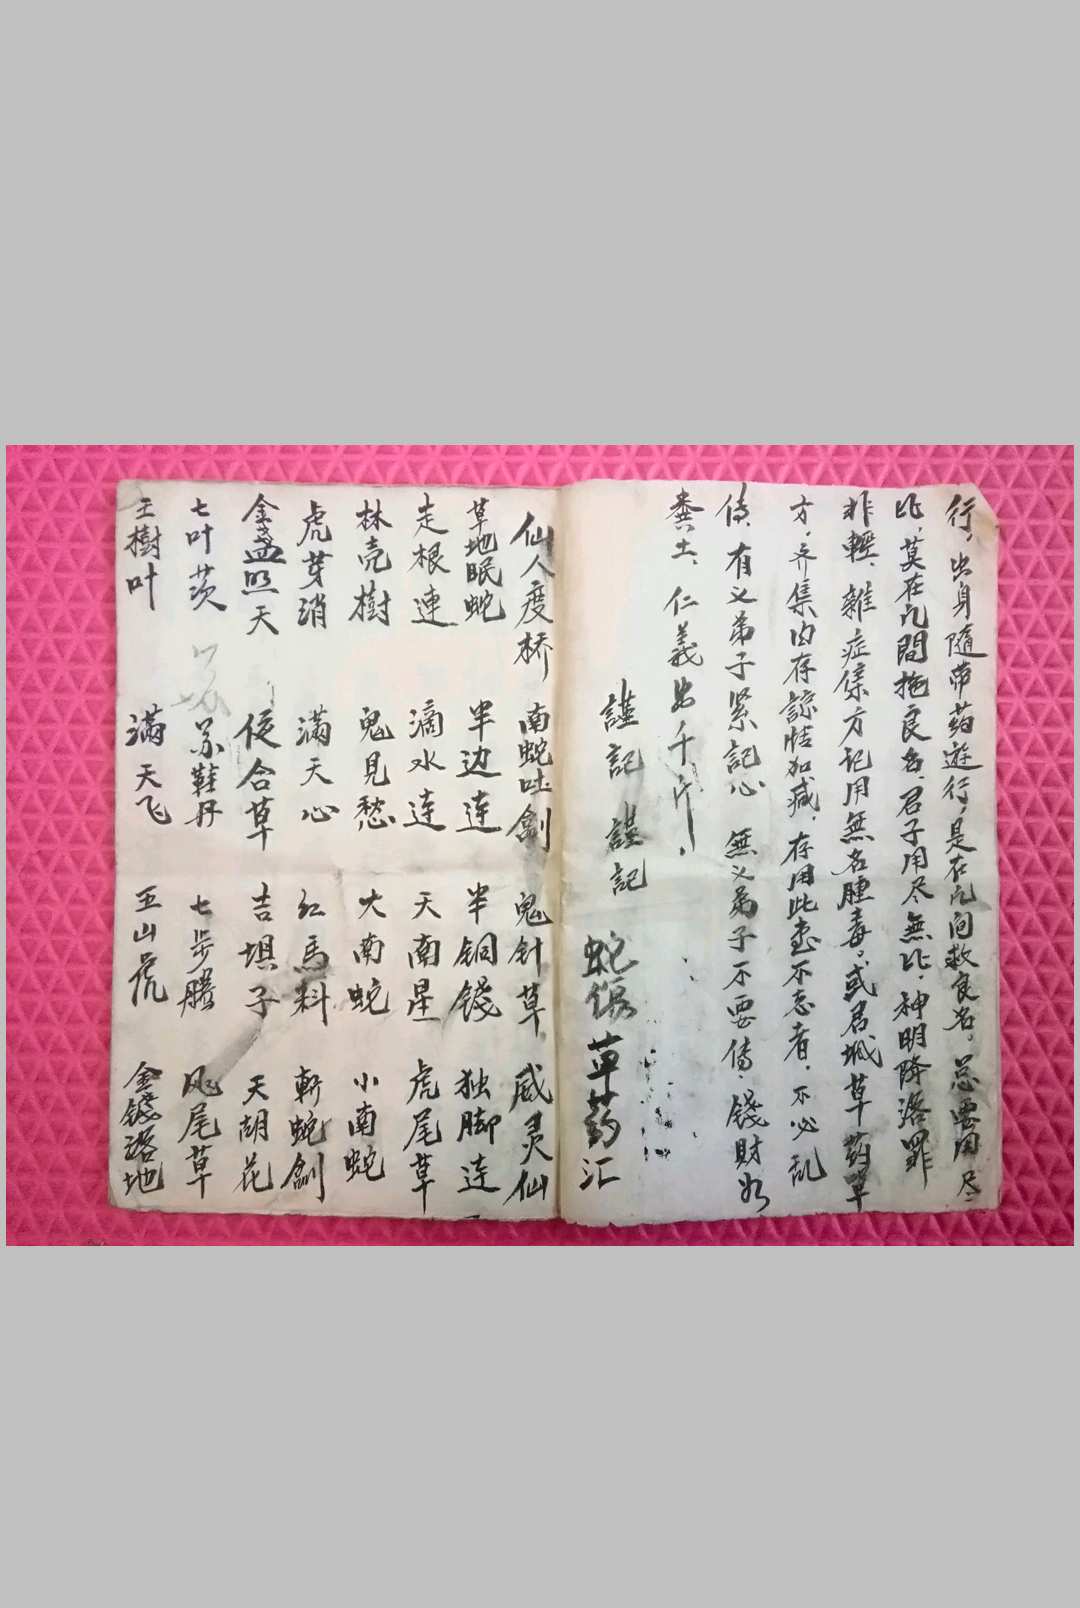 行，出身隨带药遊行，是在凡间救良名。总要用尽
比，莫在凡間拖良名，君子用尽無比，神明降落罪
非輕、雜症集方记用無名腫毒，或君城草药單
方，齐集内存諒恬加减，存用此書不忘者，不必乱
傳，有义弟子緊記心 無义弟子不要傳、錢財如
粪土、仁義出千斤，
謹記 謹記
蛇傷草药汇
仙人度桥 南蛇吐劍 鬼针草 威灵仙
草地眠蛇 半边莲 半铜錢 独脚莲
走根連 滴水莲 天南星 虎尾草
林壳樹 鬼見愁 大南蛇 小南蛇
虎芽消 满天心 红馬料 斬蛇劍
金盏照天 侫合草 吉埧子 天胡花
七叶茨 茶鞋丹 七步騰 凤尾草
王樹叶 滿天飞 五山虎 金錢落地